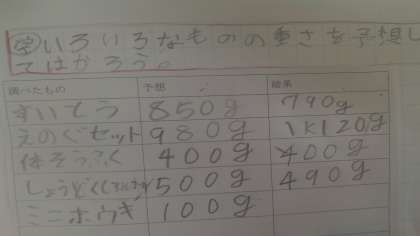 ㋕いろいろなものの重さを予想し
てはかろう。
調べたもの 予想 結果
すいとう 850g 790g
えのぐセット 980g 1k120g
体そうふく 400g 400g
しょうどくえき 500g 490g
ミニホウキ 100g